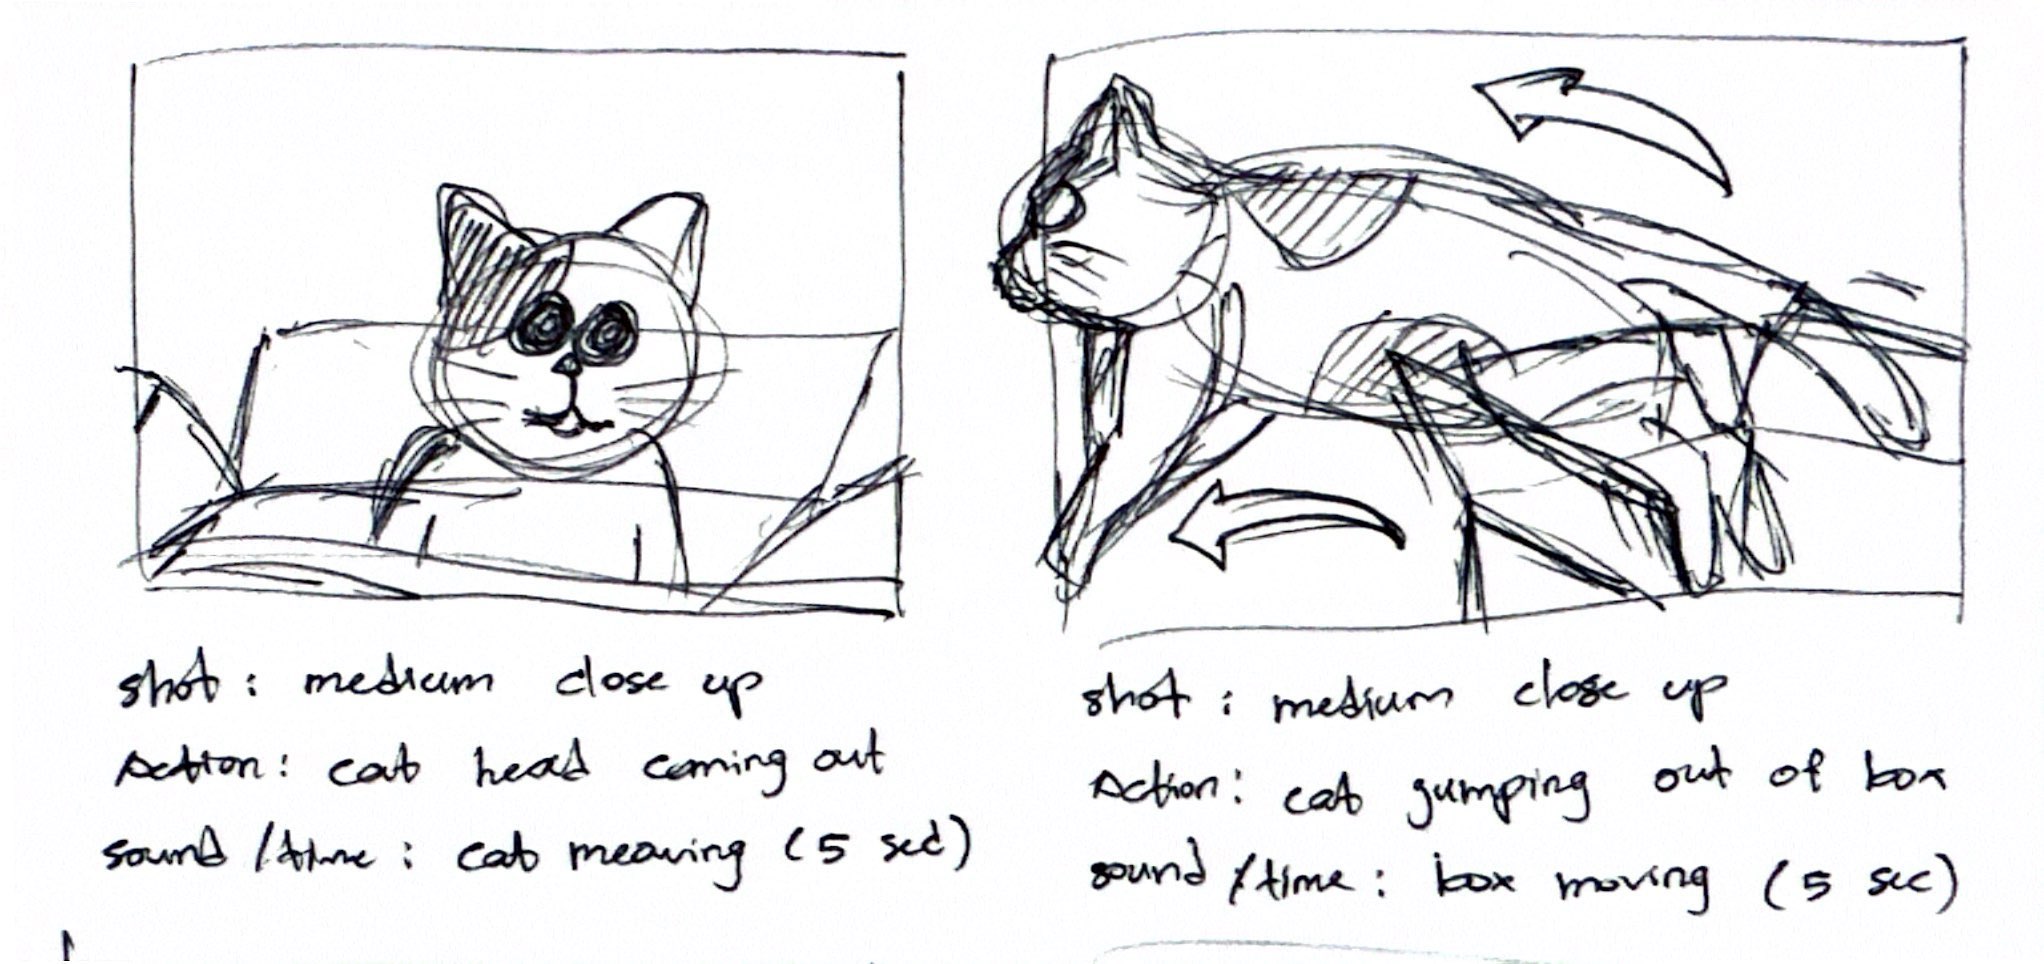 shot : medium close up
Action : cat head coming out
sound / time : cat meaving (5 sec)
shot : medium close up
Action : cat gumping out of box
sound / time : box moving (5 sec)